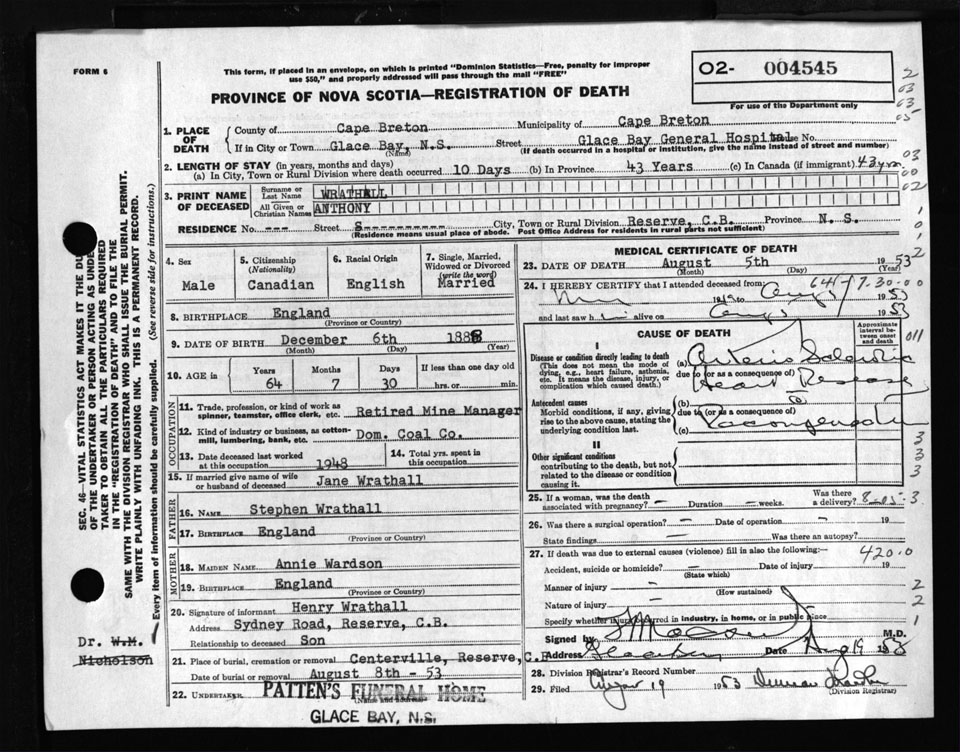 FORM 6
This form, if placed in an envelope, on which is printed "Dominion Statistics—Free, penalty for improper
use $50," and properly addressed will pass through the mail "FREE"
O2- 004545
For use of the Department only
PROVINCE OF NOVA SCOTIA—REGISTRATION OF DEATH
1. PLACE OF DEATH
County of Cape Breton Municipality of Cape Breton
If in City or Town Glace Bay, N.S. Street Glace Bay General Hospital No.
(Name) (If death occurred in a hospital or institution, give the name instead of street and number)
2. LENGTH OF STAY (in years, months and days)
(a) In City, Town or Rural Division where death occurred 10 Days (b) In Province 43 Years (c) In Canada (if immigrant) 43 yrs.
3. PRINT NAME OF DECEASED
Surname or Last Name WRATHALL
All Given or Christian Names ANTHONY
RESIDENCE No. --- Street S---------- City, Town or Rural Division Reserve, C.B. Province N. S.
(Residence means usual place of abode. Post Office Address for residents in rural parts not sufficient)
4. Sex
Male
5. Citizenship
(Nationality)
Canadian
6. Racial Origin
English
7. Single, Married,
Widowed or Divorced
(write the word)
Married
8. BIRTHPLACE England
(Province or Country)
9. DATE OF BIRTH December 6th 1888
(Month) (Day) (Year)
10. AGE in
Years Months Days If less than one day old
64 7 30 hrs. or min.
OCCUPATION
11. Trade, profession, or kind of work as
spinner, teamster, office clerk, etc. Retired Mine Manager
12. Kind of industry or business, as cotton-
mill, lumbering, bank, etc. Dom. Coal Co.
13. Date deceased last worked
at this occupation 1948
14. Total yrs. spent in
this occupation
15. If married give name of wife
or husband of deceased Jane Wrathall
FATHER
16. NAME Stephen Wrathall
17. BIRTHPLACE England
(Province or Country)
MOTHER
18. MAIDEN NAME Annie Wardson
19. BIRTHPLACE England
(Province or Country)
20. Signature of informant Henry Wrathall
Address Sydney Road, Reserve, C.B.
Relationship to deceased Son
21. Place of burial, cremation or removal Centerville, Reserve, C.B.
Date of burial or removal August 8th - 53
22. UNDERTAKER PATTEN'S FUNERAL HOME
(Name and address)
GLACE BAY, N.S.
MEDICAL CERTIFICATE OF DEATH
23. DATE OF DEATH August 5th 1953
(Month) (Day) (Year)
24. I HEREBY CERTIFY that I attended deceased from:
19 to 1953
and last saw h alive on 1953
CAUSE OF DEATH
Approximate
interval be-
tween onset
and death
I
Disease or condition directly leading to death
(This does not mean the mode of
dying, e.g., heart failure, asthenia,
etc. It means the disease, injury, or
complication which caused death.)
(a) Arterio Sclerotic
due to (or as a consequence of)
Heart Disease
Antecedent causes
Morbid conditions, if any, giving
rise to the above cause, stating the
underlying condition last.
(b)
due to (or as a consequence of)
(c)
II
Other significant conditions
contributing to the death, but not
related to the disease or condition
causing it.
25. If a woman, was the death
associated with pregnancy? – Duration –weeks. Was there
a delivery?
26. Was there a surgical operation? – Date of operation – 19
State findings Was there an autopsy?
27. If death was due to external causes (violence) fill in also the following:–
Accident, suicide or homicide? – Date of injury 19
(State which)
Manner of injury –
(How sustained)
Nature of injury –
Specify whether injury occurred in industry, in home, or in public place
Signed by M.D.
Address Glace Bay Date Aug 19 1953
28. Division Registrar's Record Number
29. Filed 19 1953
(Division Registrar)
SEC. 46—VITAL STATISTICS ACT MAKES IT THE DUTY
OF THE UNDERTAKER OR PERSON ACTING AS UNDER-
TAKER TO OBTAIN ALL THE PARTICULARS REQUIRED
IN THE "REGISTRATION OF DEATH" AND TO FILE THE
SAME WITH THE DIVISION REGISTRAR WHO SHALL ISSUE THE BURIAL PERMIT.
WRITE PLAINLY WITH UNFADING INK. THIS IS A PERMANENT RECORD.
Every item of information should be carefully supplied. (See reverse side for instructions.)
Dr. W.M.
Nicholson